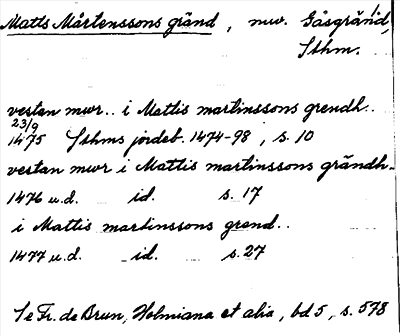 Matts Mårtenssons gränd, nuv. Gåsgränd,
Sthm.
vestan mwr.. i Mattis martinssons grendh..
23/9
1475 Sthms jordeb. 1474-98, s. 10
vestan mwr i Mattis martinssons grändh..
1476 u.d. id. s. 17
i Mattis martinssons grend..
1477 u.d. id. s. 27
Se Fr. de Brun, Holmiana et alia, bd 5, s. 578